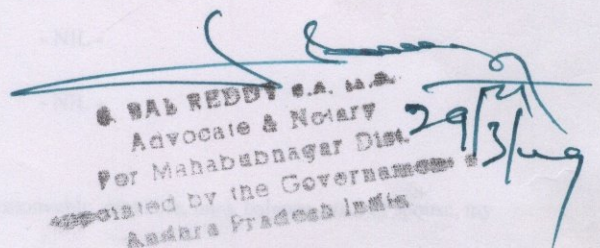 - NIL -
- NIL -
BAL REDDY B.A. LL.B.
Advocate & Notary
For Mahabubnagar Dist.
29/3/09
Appointed by the Government of
Andhra Pradesh India
spouse, my